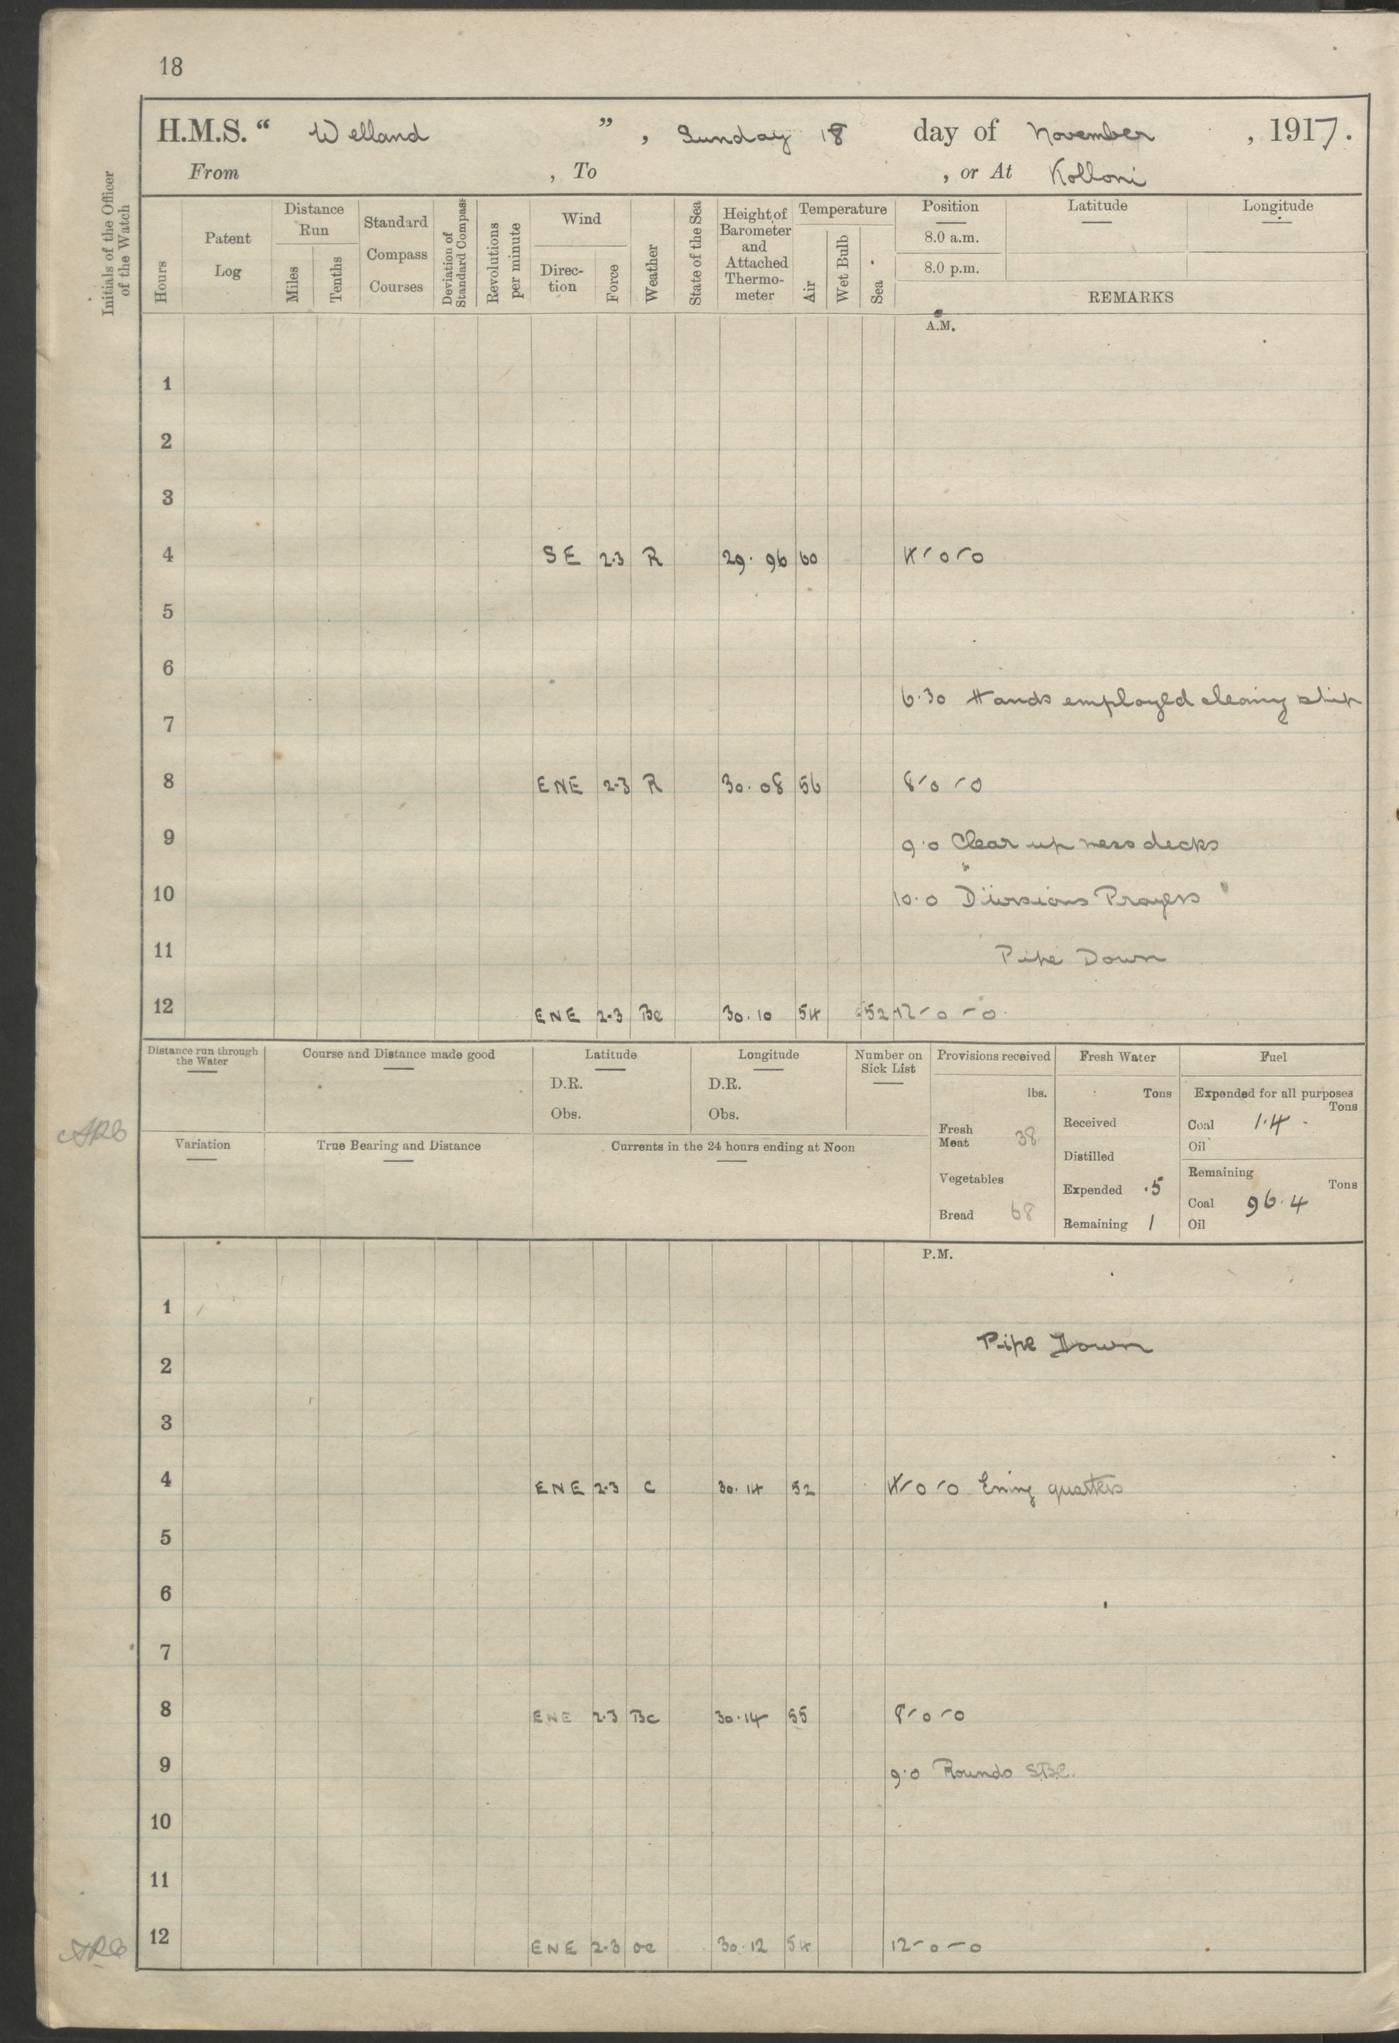 18
H.M.S. “ Welland ” , Sunday 18 day of November , 1917.
From , To , or At Kolloni
Initials of the Officer of the Watch
Hours
Patent Log
Distance Run
Miles
Tenths
Standard Compass Courses
Deviation of Standard Compass
Revolutions per minute
Wind
Direction
Force
Weather
State of the Sea
Height of Barometer and Attached Thermometer
Temperature
Air
Wet Bulb
Sea
Position
8.0 a.m.
8.0 p.m.
Latitude
Longitude
REMARKS
A.M.
1
2
3
4 SE 2·3 R 29·96 60 4-0-0
5
6
6·30 Hands employed cleaning ship
7
8 ENE 2·3 R 30·08 56 8-0-0
9 9·0 Clear up mess decks
10 10·0 Divisions Prayers
11 Pipe Down
12 ENE 2·3 Bc 30·10 54 52 12-0-0
Distance run through the Water
Course and Distance made good
Latitude
D.R.
Obs.
Longitude
D.R.
Obs.
Number on Sick List
Provisions received
lbs.
Fresh Meat 38
Vegetables
Bread 68
Fresh Water
Tons
Received
Distilled
Expended ·5
Remaining 1
Fuel
Expended for all purposes
Tons
Coal 1·4
Oil
Remaining
Tons
Coal 96·4
Oil
Variation
True Bearing and Distance
Currents in the 24 hours ending at Noon
P.M.
1
Pipe Down
2
3
4 ENE 2·3 C 30·14 52 4-0-0 Ening quarters
5
6
7
8 ENE 2·3 Bc 30·14 55 8-0-0
9 9·0 Rounds
10
11
12 ENE 2·3 oc 30·12 54 12-0-0